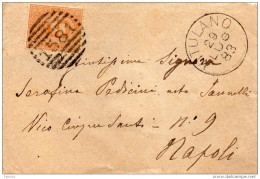 VITULANO
29
LUG
83
Gentilissima Signora
Serafina Pedicini nata Iannelli
Vico Cinque Santi - Nº 9
Napoli